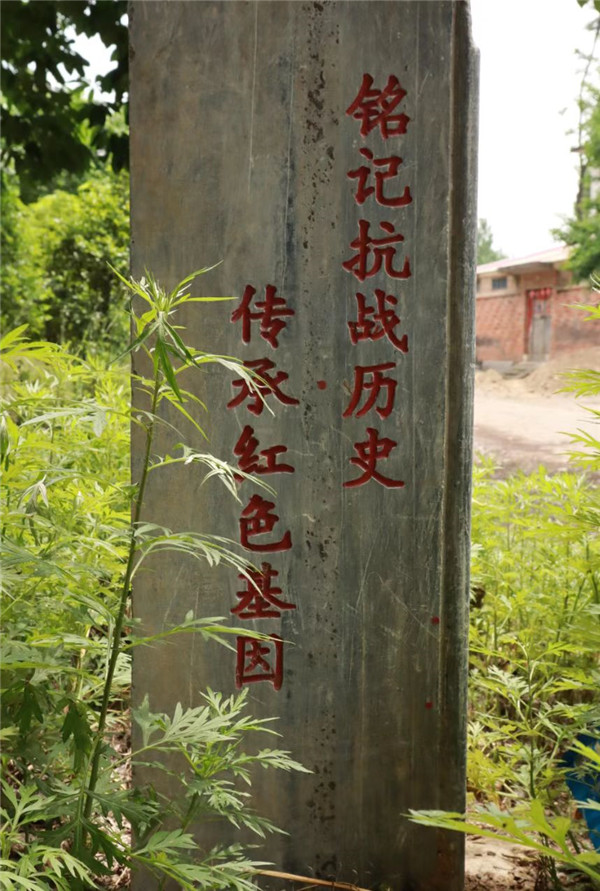 铭记抗战历史
传承红色基因